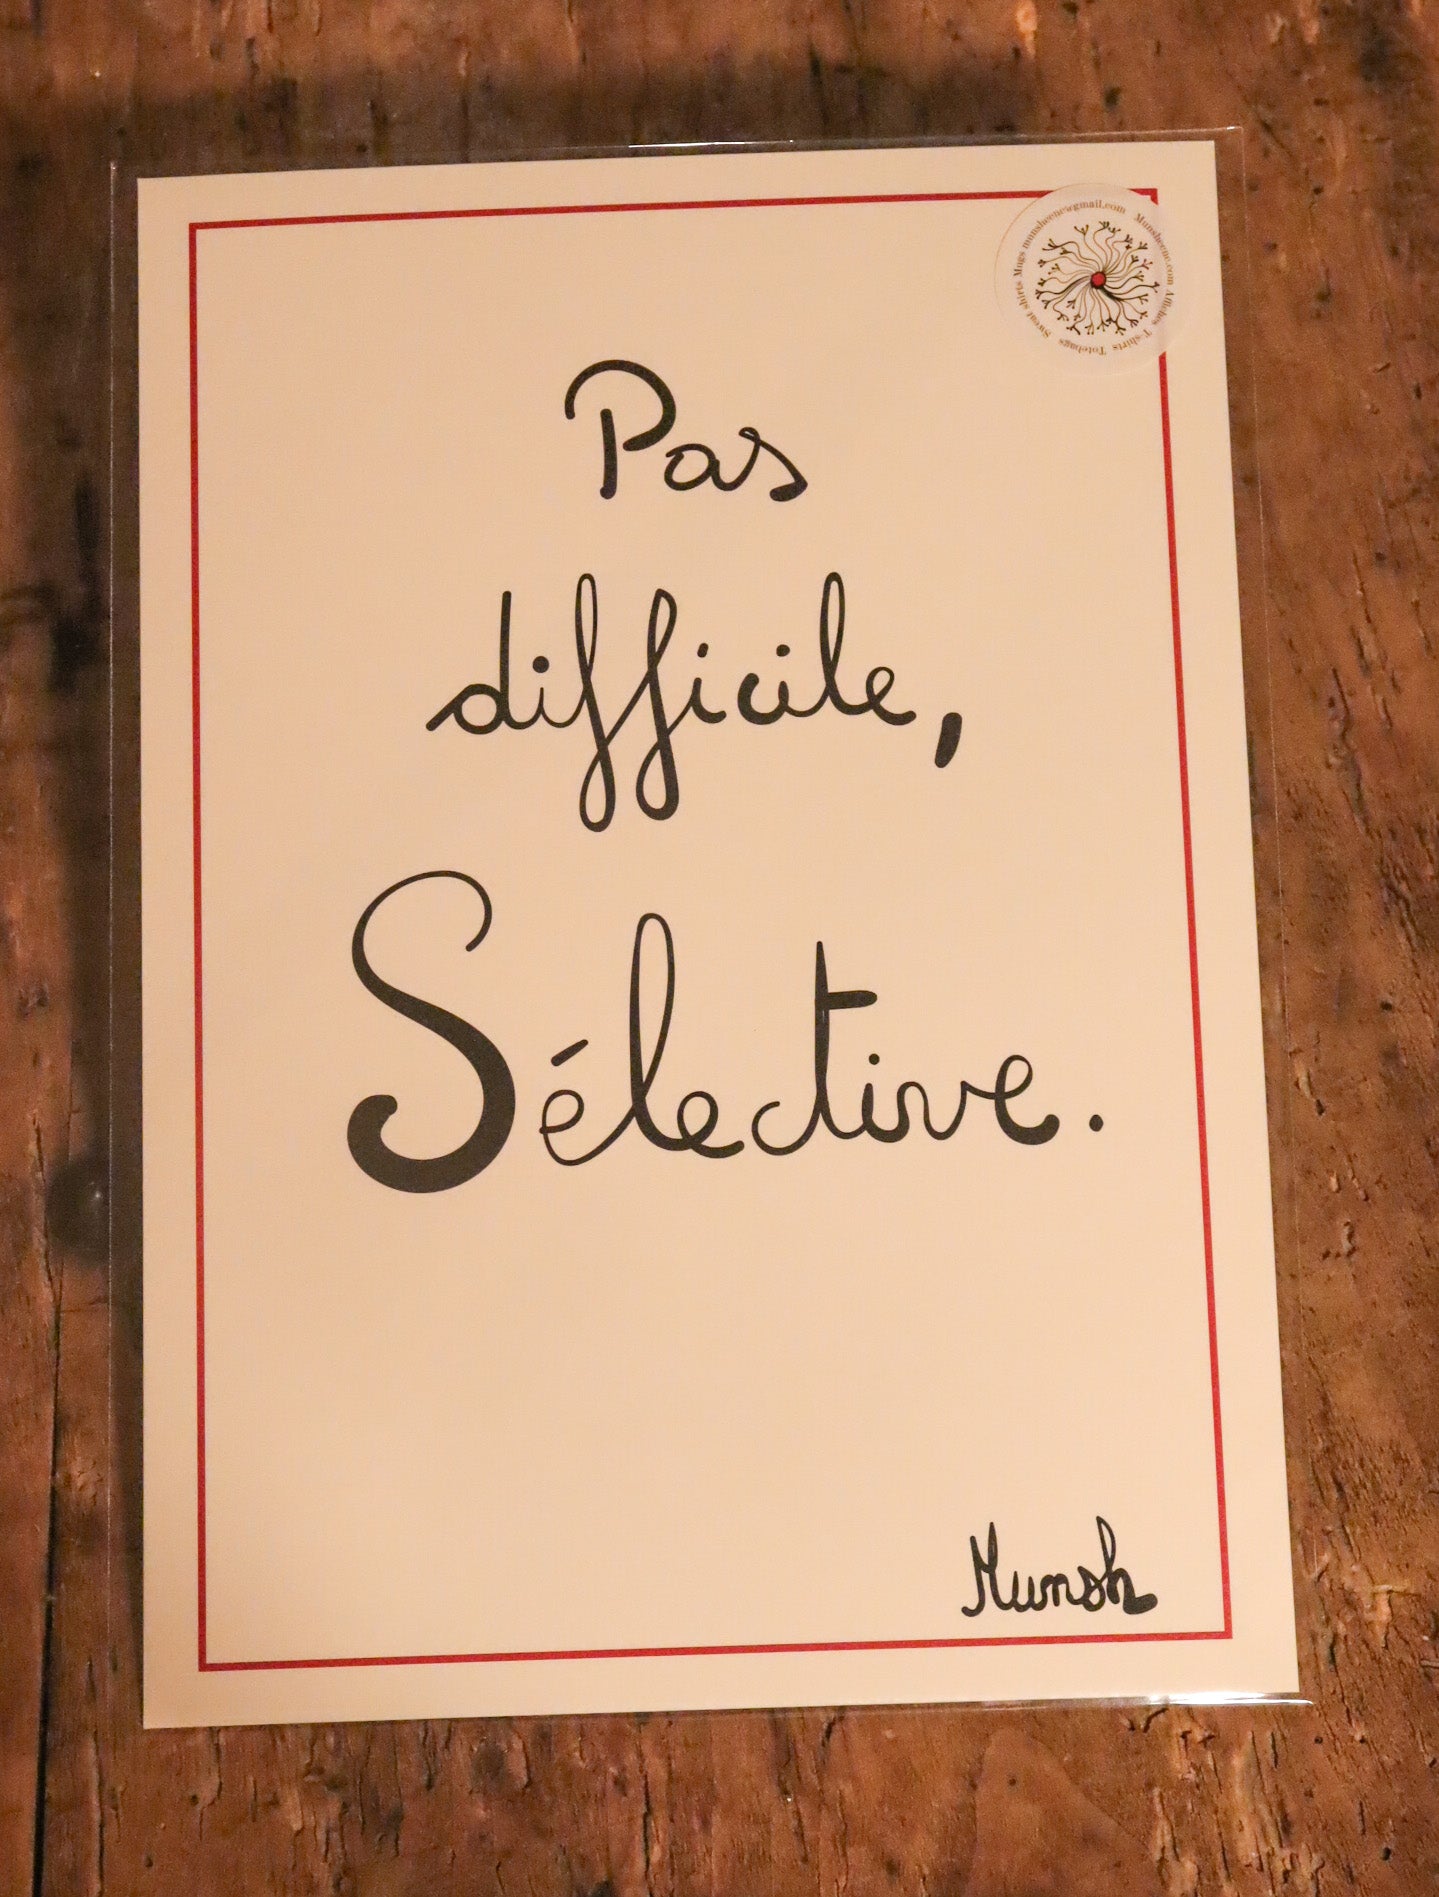 Munsheene.com Affiches T-shirts Totebags Sweat shirts Mugs munsheene@gmail.com
Pas
difficile,
Sélective.
Munsh